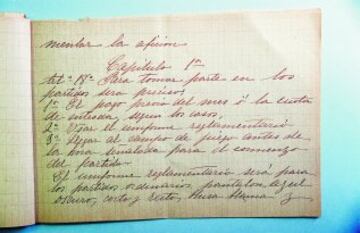 mentar la aficion
Capítulo 1º
Art. 1º Para tomar parte en los
partidos sera preciso:
1º El pago previo del mes ó la cuota
de entrada, segun los casos.
2º Usar el uniforme reglamentario
3º Llegar al campo de juego antes de
la hora señalada para el comienzo
del partido.
El uniforme reglamentario será para
los partidos ordinarios, pantalon azul
oscuro, corto y recto, blusa blanca y